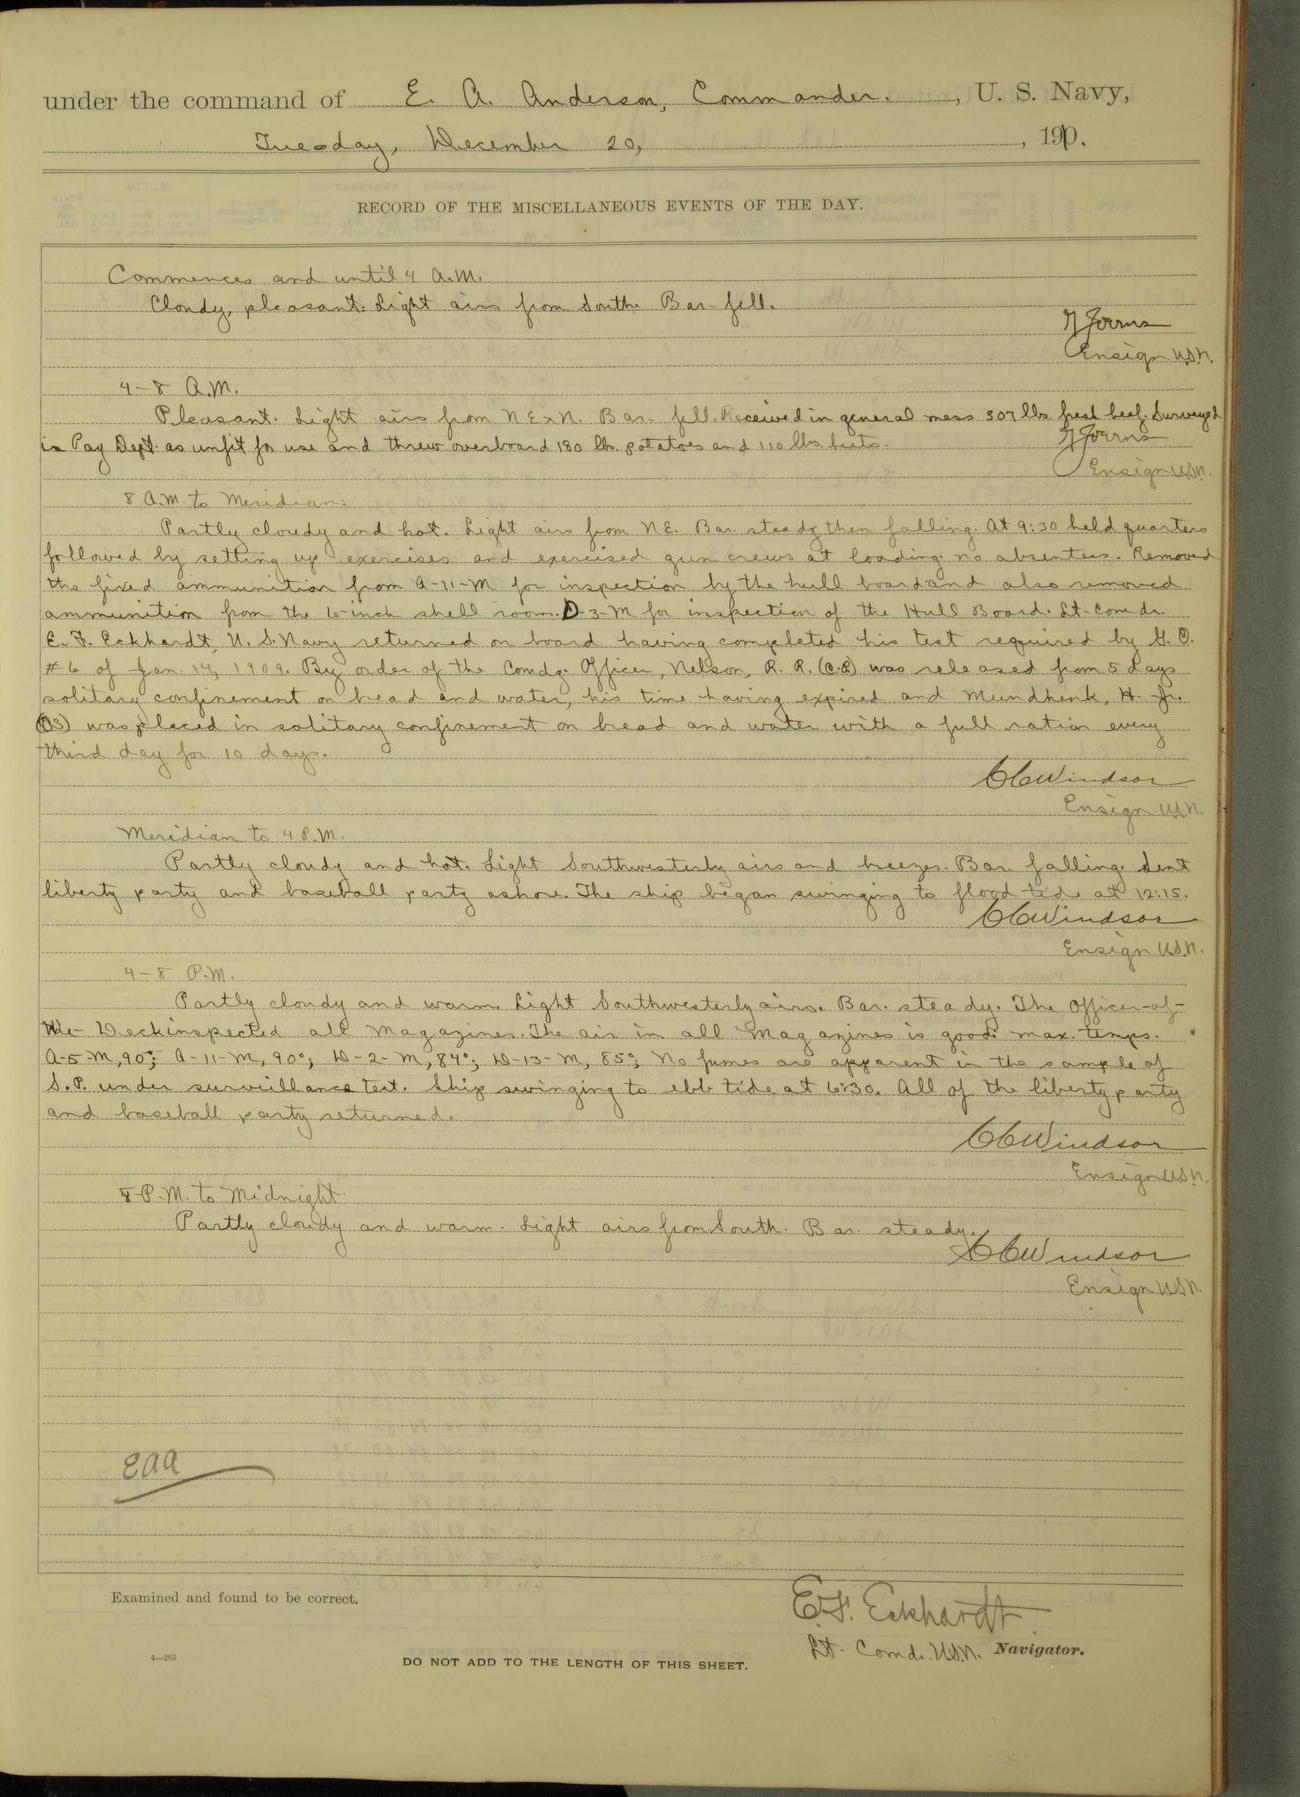 under the command of E. A. Anderson, Commander. , U. S. Navy,
Tuesday, December 20, , 1910.
RECORD OF THE MISCELLANEOUS EVENTS OF THE DAY.
Commences and until 4 A.M.
Cloudy, pleasant. Light airs from South. Bar. fell.
Ensign U.S.N.
4-8 A.M.
Pleasant. Light airs from NExN. Bar. fell. Received in general mess 307 lbs. fresh beef. Surveyed
in Pay Dept. as unfit for use and threw overboard 180 lbs. potatoes and 110 lbs. beets.
Ensign U.S.N.
8 A.M. to Meridian:
Partly cloudy and hot. Light airs from NE. Bar. steady then falling. At 9:30 held quarters
followed by setting up exercises and exercised gun crews at loading: no absentees. Removed
the fixed ammunition from A-11-M for inspection by the hull board and also removed
ammunition from the 6-inch shell room. D-3-M for inspection of the Hull Board. Lt-Comdr.
E. F. Eckhardt, U. S. Navy returned on board having completed his test required by G. O.
#6 of Jan. 14, 1909. By order of the Comdg. Officer, Nelson, R. R. (C.P.) was released from 5 days
solitary confinement on bread and water, his time having expired and Mundhenk, H. Jr.
(OS) was placed in solitary confinement on bread and water with a full ration every
third day for 10 days.
CCWindsor
Ensign U.S.N.
Meridian to 4 P.M.
Partly cloudy and hot. Light Southwesterly airs and breezes. Bar. falling. Sent
liberty party and baseball party ashore. The ship began swinging to flood tide at 12:15.
CCWindsor
Ensign U.S.N.
4-8 P.M.
Partly cloudy and warm. Light Southwesterly airs. Bar. steady. The Officer-of-
the-Deck inspected all magazines. The air in all magazines is good: max. temps.
A-5-M, 90°; A-11-M, 90°; D-2-M, 84°; D-13-M, 85°; No fumes are apparent in the sample of
S.P. under surveillance test. Ship swinging to ebb tide at 6:30. All of the liberty party
and baseball party returned.
CCWindsor
Ensign U.S.N.
8 P.M. to Midnight.
Partly cloudy and warm. Light airs from South. Bar. steady.
CCWindsor
Ensign U.S.N.
EAA
Examined and found to be correct.
E. F. Eckhardt
Lt. Comdr. U.S.N. Navigator.
4—265
DO NOT ADD TO THE LENGTH OF THIS SHEET.